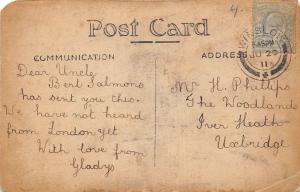 4.
Post Card
COMMUNICATION
ADDRESS
WINSLOW
JU 29
11
Dear Uncle
Bert Salmons
has sent you this.
We have not heard
from London yet
With love from
Gladys
Mr H. Phillips
The Woodlands
Iver Heath
Uxbridge